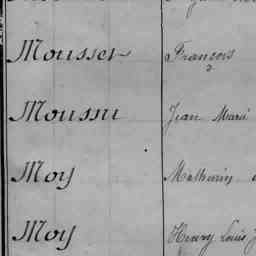 Mousset François
Moussu Jean Marie
Moy Mathurin
Moy Henry Louis J